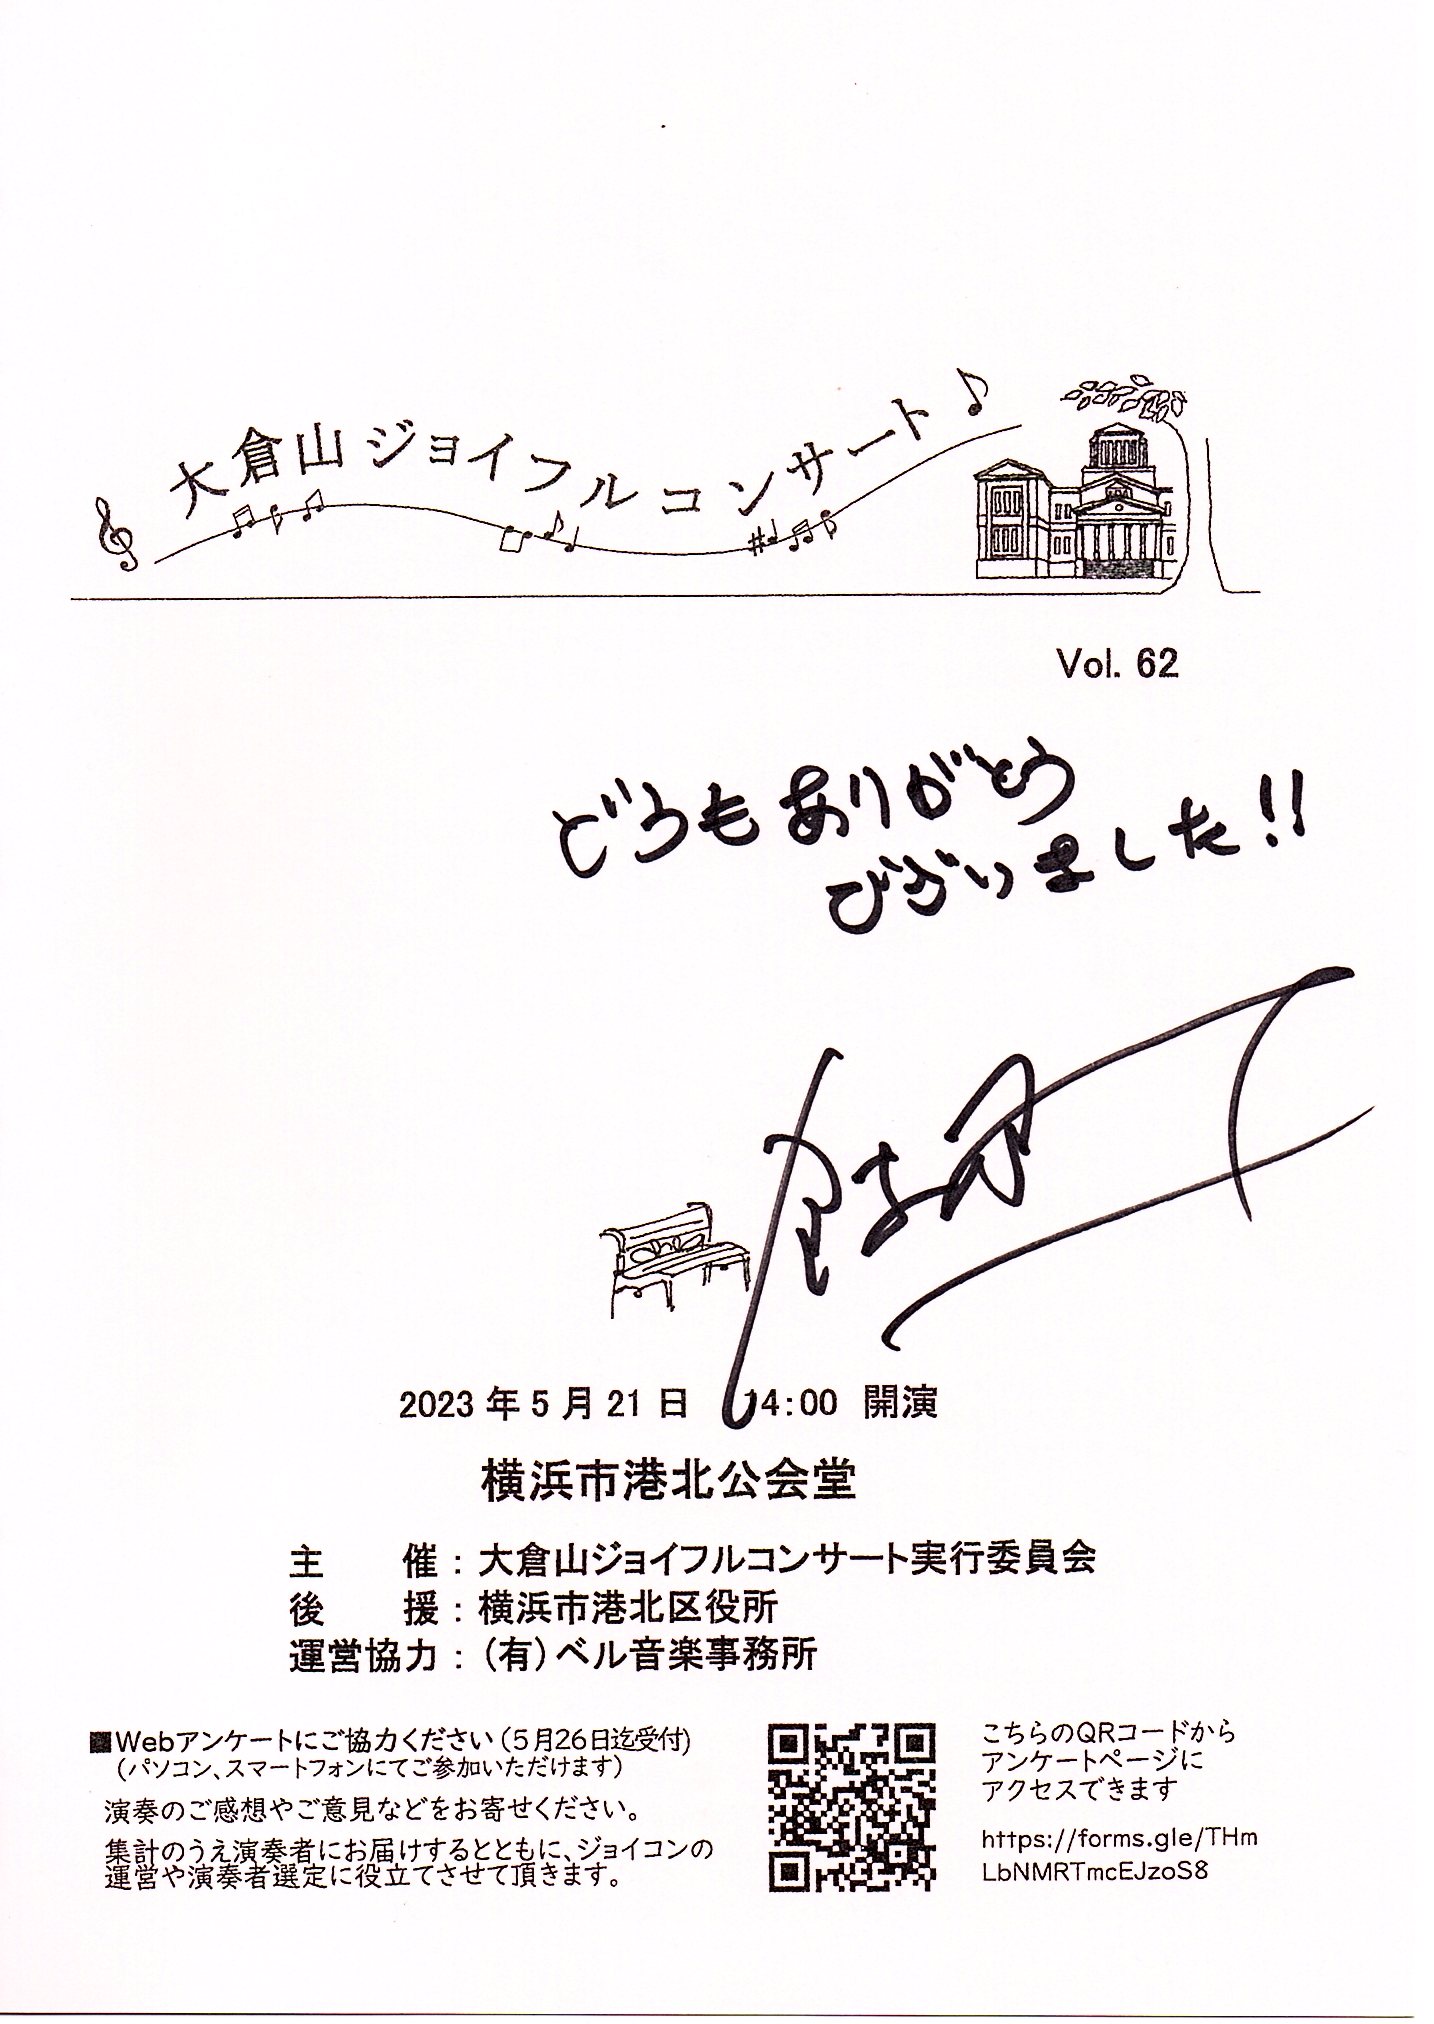 大倉山ジョイフルコンサート
Vol. 62
どうもありがとう
ございました!!
2023 年 5 月 21 日 14:00 開演
横浜市港北公会堂
主 催 : 大倉山ジョイフルコンサート実行委員会
後 援 : 横浜市港北区役所
運営協力 : (有)ベル音楽事務所
■Webアンケートにご協力ください(5月26日迄受付)
(パソコン、スマートフォンにてご参加いただけます)
演奏のご感想やご意見などをお寄せください。
集計のうえ演奏者にお届けするとともに、ジョイコンの
運営や演奏者選定に役立てさせて頂きます。
こちらのQRコードから
アンケートページに
アクセスできます
https://forms.gle/THm
LbNMRTmcEJzoS8